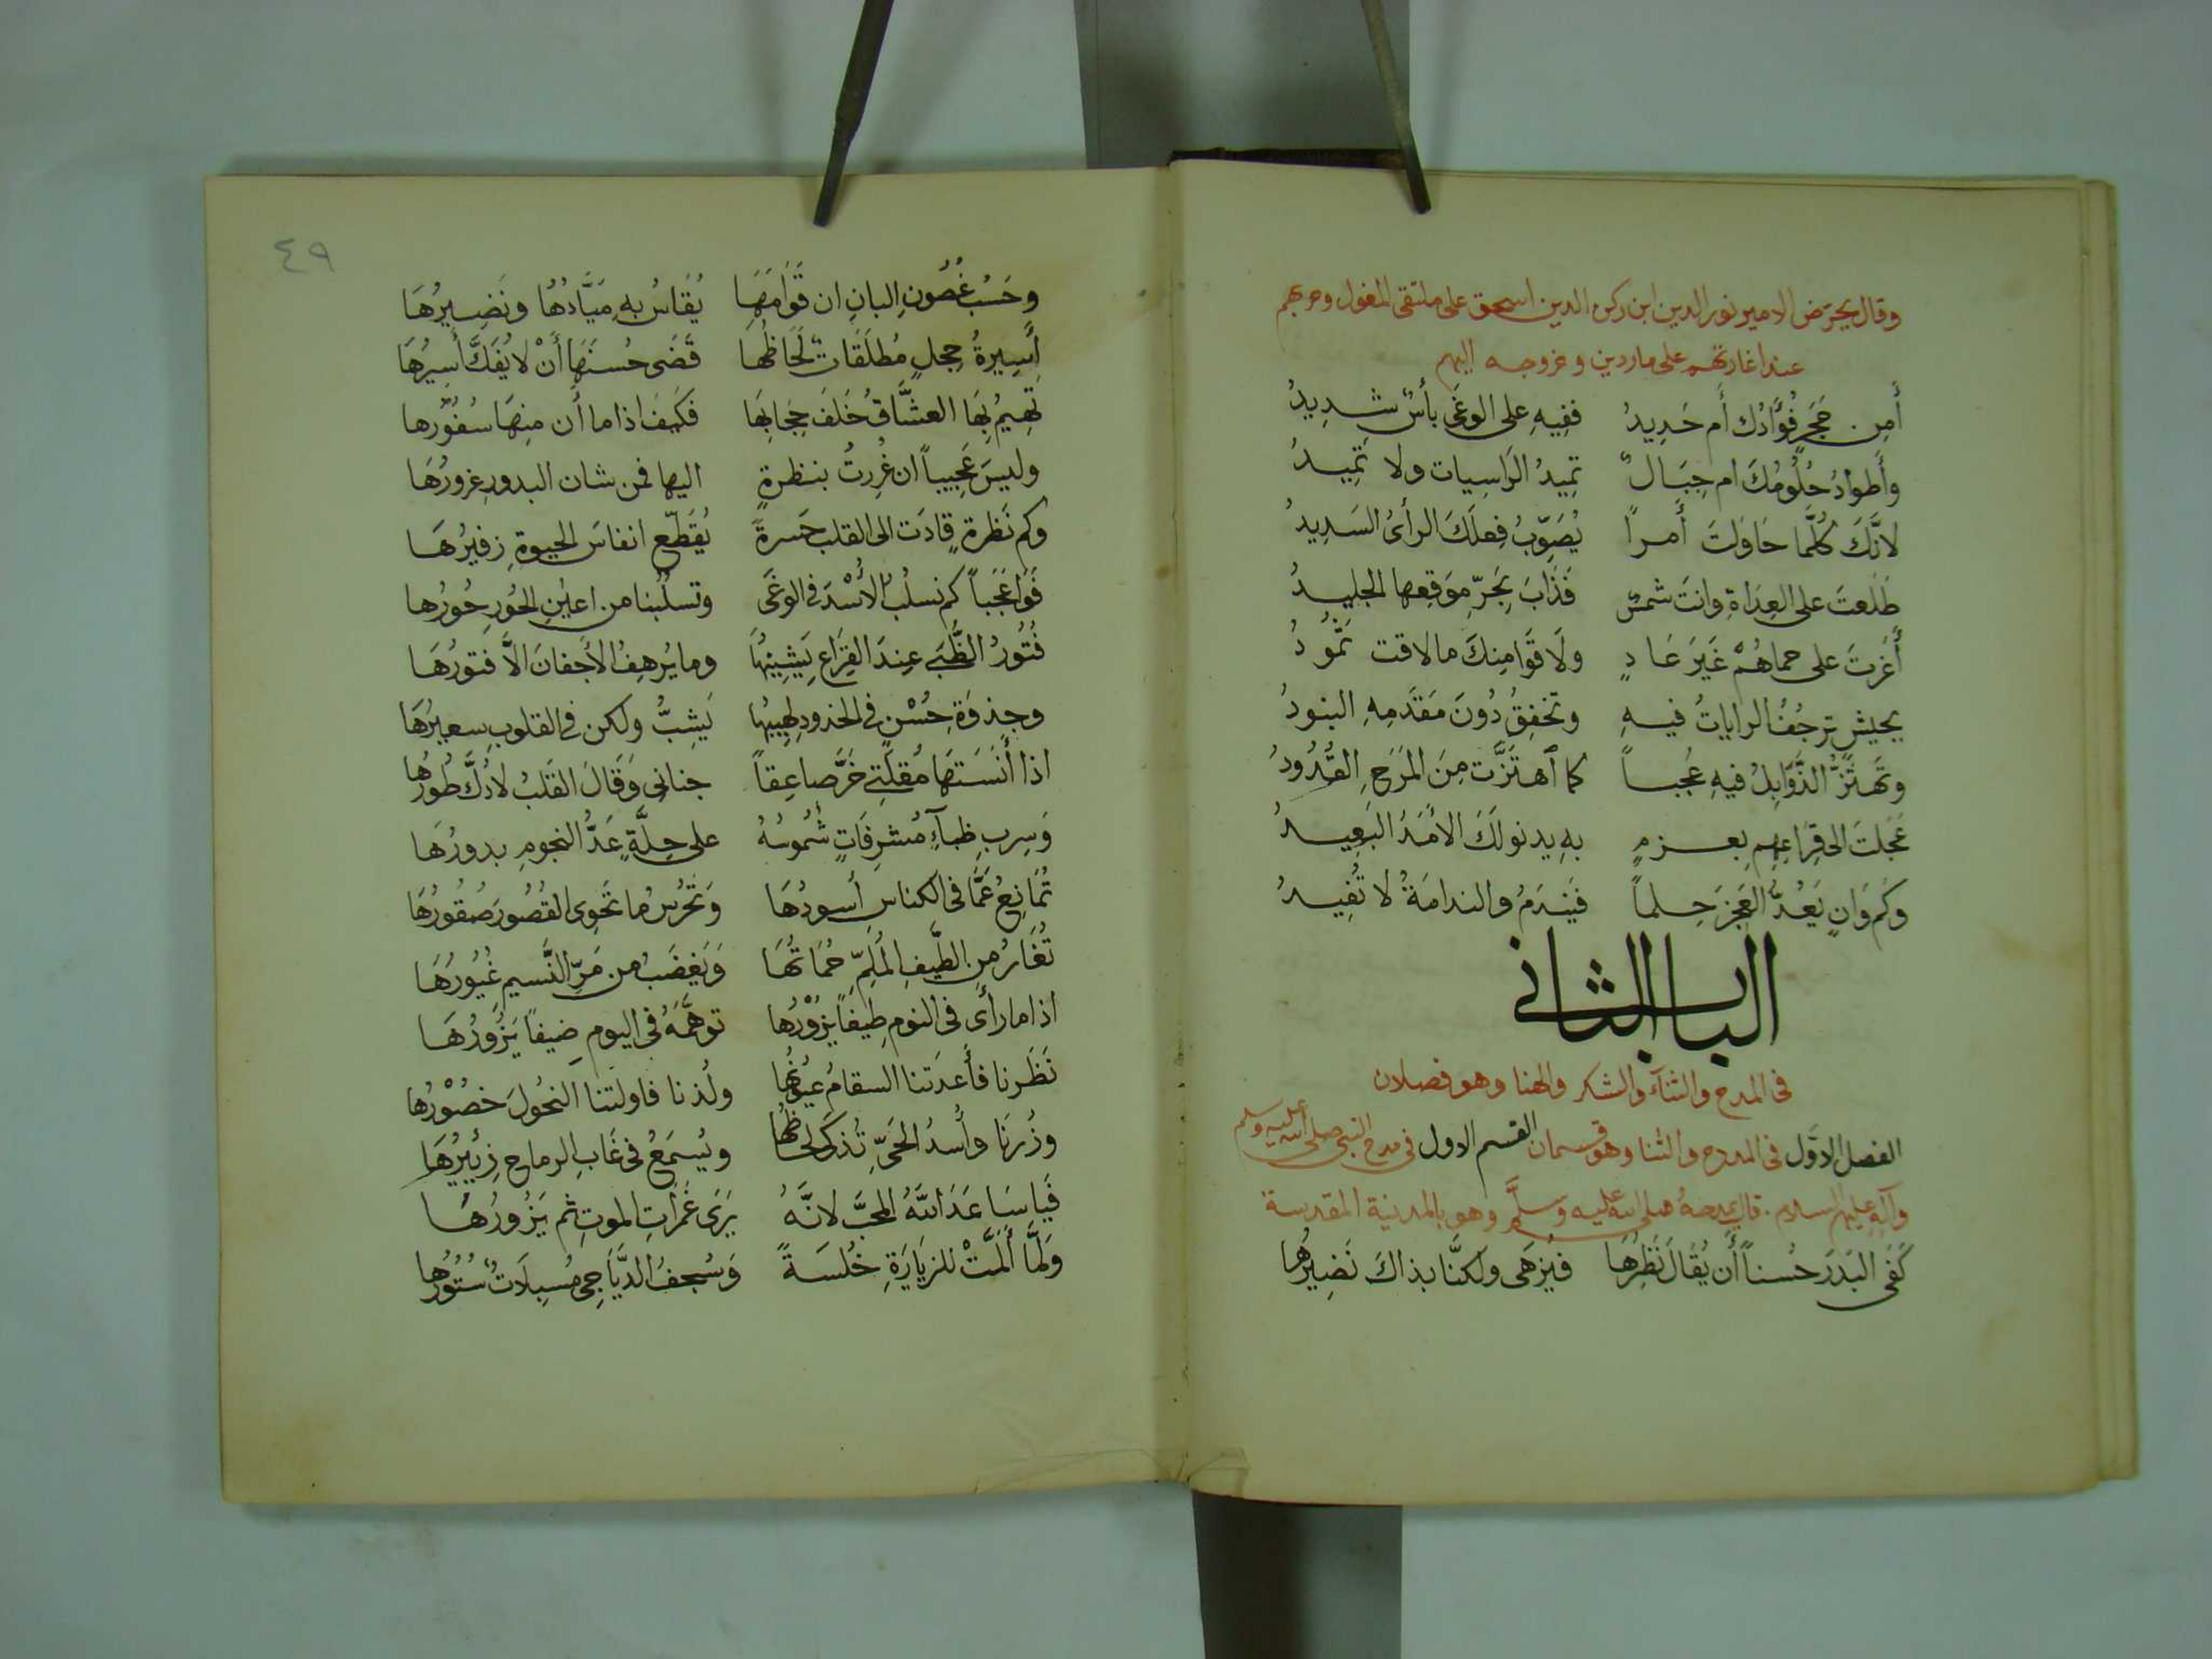 وقال يحرّض الامير نور الدين ابن ركن الدين اسحق على ملتقى المغول وحربهم
عند اغارتهم على ماردين وخروجه اليهم
أَمِن حَجَرٍ فُؤَادُك أَم حَدِيدُ ففِيهِ على الوغَى بأسٌ شدِيدُ
وأَطوادُ حُلُومُكَ ام جِبَالٌ تمِيدُ الرَاسِيات ولا تمِيدُ
لانَّكَ كُلَّما حَاوَلتَ أَمراً يُصَوِّبُ فِعلَكَ الرأىُ السَدِيدُ
طَلَعتَ على العِدَاةِ وانتَ شمسٌ فَذَابَ بِحَرِّ مَوقِعِها الجليدُ
أَغَرتَ على حماهُمْ غَيرَ عَادٍ ولَاقَوا مِنكَ مالاقت ثَمُودُ
بجيشٍ ترجُفُ الراياتُ فيهِ وتخفِقُ دُونَ مَقدَمِهِ البنودُ
وتَهتَزُّ الذَّوَابِلُ فيهِ عُجباً كما ٱهتَزَّت مِنَ المَرَحِ القُدُودُ
عَجَلتَ الى قِرَاعِهِمِ بِعزمٍ بهِ يدنولَكَ الأمَدُ البَعِيدُ
وكَم وَانٍ يَعُدُّ العَجزَ حِلماً فَيَندَمُ والندامَةُ لا تُفِيدُ
الباب الثانى
فى المدح والثنآء والشكر والهنا وهو فصلان
الفصل الاوّل فى المدح والثنا وهو قسمان القسم الاول فى مدح النبى صلى الله عليه وسلم
وآلهِ عليهم السلام. قال يمدحهُ صلى الله عليه وسلَّم وهو بالمدينة المقدسة
كَفَى البَدرَ حُسناً أَن يُقَالَ نَظِيرُهَا فيُزهَى ولكنَّا بذاكَ نَضِيرُها
٤٩
وحَسْبُ غُصُونِ البانِ ان قَوَامَهَا يُقَاسُ بهِ مَيَّادُهَا ونَضِيرُهَا
أَسِيرَةُ حِجلٍ مُطلَقَاتٌ لَحَاظُها قَضَى حُسنُهَا أَنْ لا يُفَكَّ أَسِيرُهَا
تهِيمُ بِهَا العشَّاقُ خَلفَ حِجَابِها فكَيفَ اذا ما أَن منهَا سُفُورُها
وليسَ عَجِيباً ان غُرِرتُ بنظرةٍ اليها فمن شان البدورِ غرورُهَا
وكم نَظرةٍ قادَت الى القلب حَسرةً يُقَطِّع انفاسَ الحيوةِ زفيرُهَا
فَوَا عَجَباً كم نسلُبُ الأُسْدَ فى الوغَى وتسلُبُنا من اعيُنِ الحُورِ حُورُها
فُتُورُ الظُّبَى عِندَ القِرَاعِ يَشِينُهَا وما يُرهِفُ الأَجفانَ الاَّ فتورُهَا
وجِذوَةِ حُسْنٍ فى الخدودِ لهِيبُها يَشِبُّ ولكن فى القلوبِ سعيرُهَا
اذا أَنَسَتهَا مُقلَتِى خَرَّ صاعِقاً جنانى وَقَالَ القَلبُ لادُكَّ طُورُها
وَسِربِ ظبآءٍ مُشرِقَاتٍ شُمُوسُهُ على حِلَّةٍ عَدُّ النجومِ بدورُهَا
تُمانِعُ عَمَّا فى الكناسِ أُسودُهَا وَتَحرُسُ ما تَحَوِى القُصُورَ صُقُورُهَا
تُغَارُ مِن الطَّيفِ المُلِمِّ حُمَاتُهَا وَيَغضَبُ من مَرِّ النَّسيم غُيُورُهَا
اذا ما رأَى فى النومِ طيفاً يزُورُها توهَّمَهُ فى اليومِ ضيفاً يَزُورُهَا
نَظَرنا فأَعدَتنا السقامُ عيُونُها ولُذنا فاولتنا النحُولَ خصُورُها
وزُرنَا وأُسدُ الحَىِّ تُذكَى لحاظُها ويُسمَعُ فى غَابِ الرماحِ زئِيرُهَا
فَيا سَاعَدَ اللهُ المحبَّ لانَّهُ يَرَى غَمَرَاتِ الموتِ ثم يَزُورُهَا
وَلَمَّا أَلَمَّتْ للزيَارَةِ خُلسَةً وَسُجفُ الدَّيَاجِى مُسبِلَاتٌ سُتُورُها